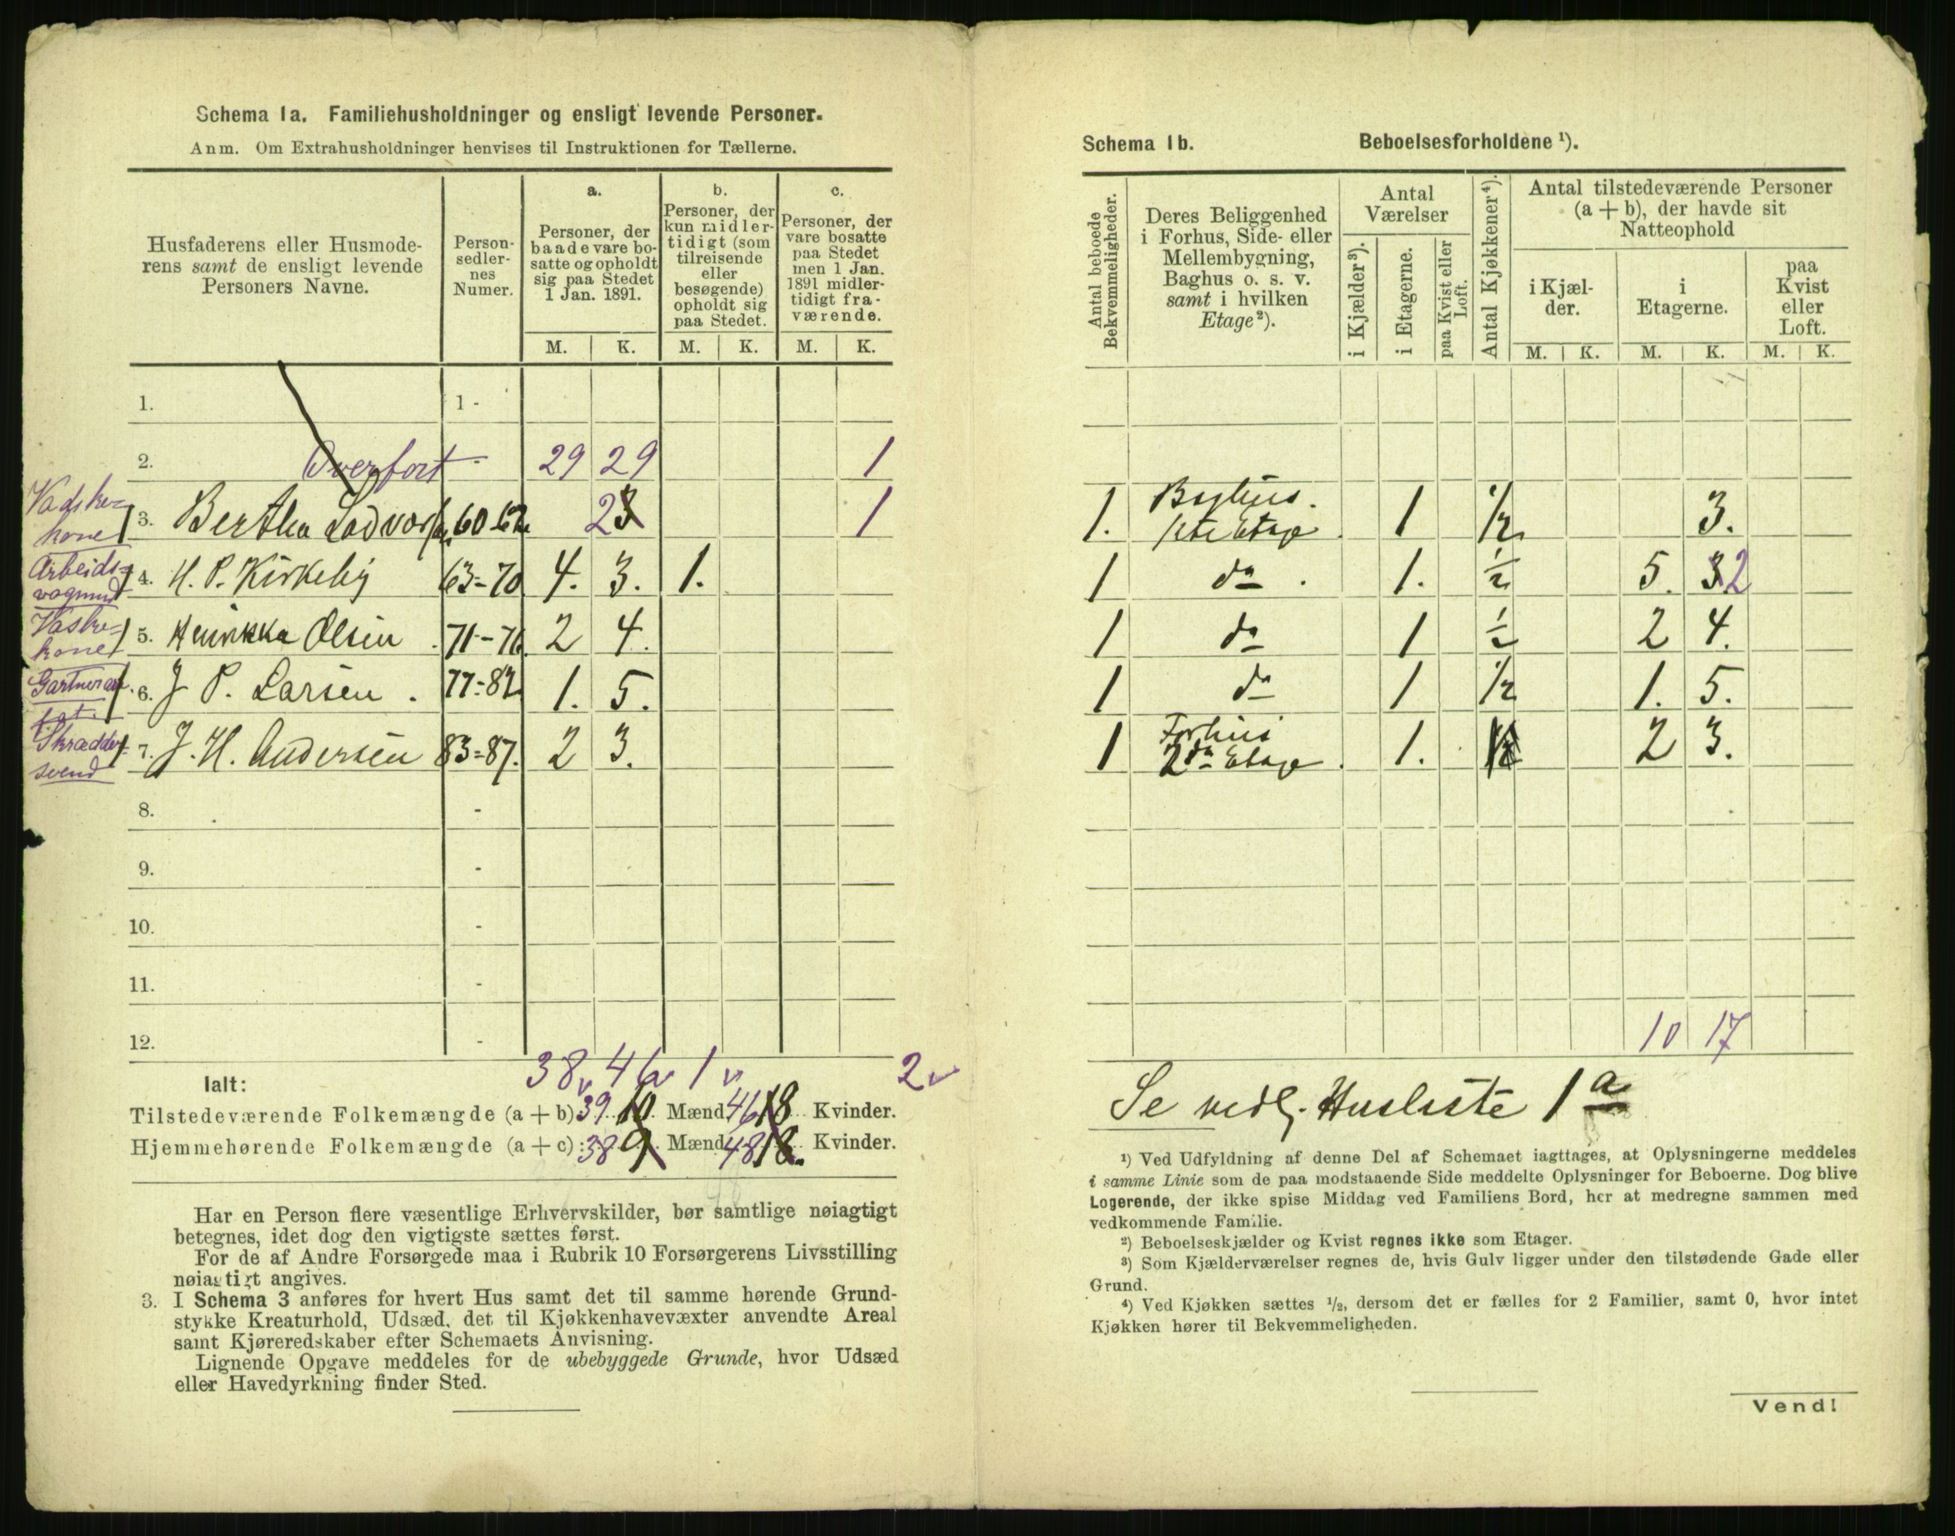 Schema 1 a. Familiehusholdninger og ensligt levende Personer.
Anm. Om Extrahusholdninger henvises til Instruktionen for Tællerne.
Husfaderens eller Husmoderens samt de ensligt levende Personers Navne.
Personsedlernes Numer.
a. Personer, der baade vare bosatte og opholdt sig paa Stedet 1 Jan. 1891.
b. Personer, der kun midlertidigt (som tilreisende eller besøgende) opholdt sig paa Stedet.
c. Personer, der vare bosatte paa Stedet men 1 Jan. 1891 midlertidigt fraværende.
M. K. M. K. M. K.
1. 1 -
2. Overført - 29 29 1
3. Bertha 60-62 2 1
Arbeidsvognmd 4. H. P. Kirkeby 63-70 4. 3. 1.
Vaskekone 5. Olsen 71-76 2 4.
6. J P. Larsen. 77-82 1. 5.
Skræddersvend 7. J. H. Andersen 83-87. 2 3.
8. -
9. -
10. -
11. -
12. -
38 46 1 2
Ialt:
Tilstedeværende Folkemængde (a + b) 39 10 Mænd 46 18 Kvinder.
Hjemmehørende Folkemængde (a + c): 38 9 Mænd 48 18. Kvinder.
Har en Person flere væsentlige Erhvervskilder, bør samtlige nøiagtigt
betegnes, idet dog den vigtigste sættes først.
For de af Andre Forsørgede maa i Rubrik 10 Forsørgerens Livsstilling
nøiagtigt angives.
3. I Schema 3 anføres for hvert Hus samt det til samme hørende Grund-
stykke Kreaturhold, Udsæd, det til Kjøkkenhavevæxter anvendte Areal
samt Kjøreredskaber efter Schemaets Anvisning.
Lignende Opgave meddeles for de ubebyggede Grunde, hvor Udsæd
eller Havedyrkning finder Sted.
Schema 1 b. Beboelsesforholdene ¹).
Antal beboede Bekvemmeligheder.
Deres Beliggenhed i Forhus, Side- eller Mellembygning, Baghus o. s. v. samt i hvilken Etage ²).
Antal Værelser
i Kjælder ³).
i Etagerne.
paa Kvist eller Loft.
Antal Kjøkkener ⁴).
Antal tilstedeværende Personer (a + b), der havde sit Natteophold
i Kjælder.
i Etagerne.
paa Kvist eller Loft.
M. K. M. K. M. K.
1. Baghus. 1ste Etage. 1 1/2 3.
1 do. 1. 1/2 5. 2
1 do 1 1/2 2 4.
1 do 1 1/2 1. 5.
1 Forhus 2den Etage. 1. 2 3.
10 17
Se vedl. Husliste 1 a
¹) Ved Udfyldning af denne Del af Schemaet iagttages, at Oplysningerne meddeles
i samme Linie som de paa modstaaende Side meddelte Oplysninger for Beboerne. Dog blive
Logerende, der ikke spise Middag ved Familiens Bord, her at medregne sammen med
vedkommende Familie.
²) Beboelseskjælder og Kvist regnes ikke som Etager.
³) Som Kjælderværelser regnes de, hvis Gulv ligger under den tilstødende Gade eller
Grund.
⁴) Ved Kjøkken sættes ½, dersom det er fælles for 2 Familier, samt 0, hvor intet
Kjøkken hører til Bekvemmeligheden.
Vend!